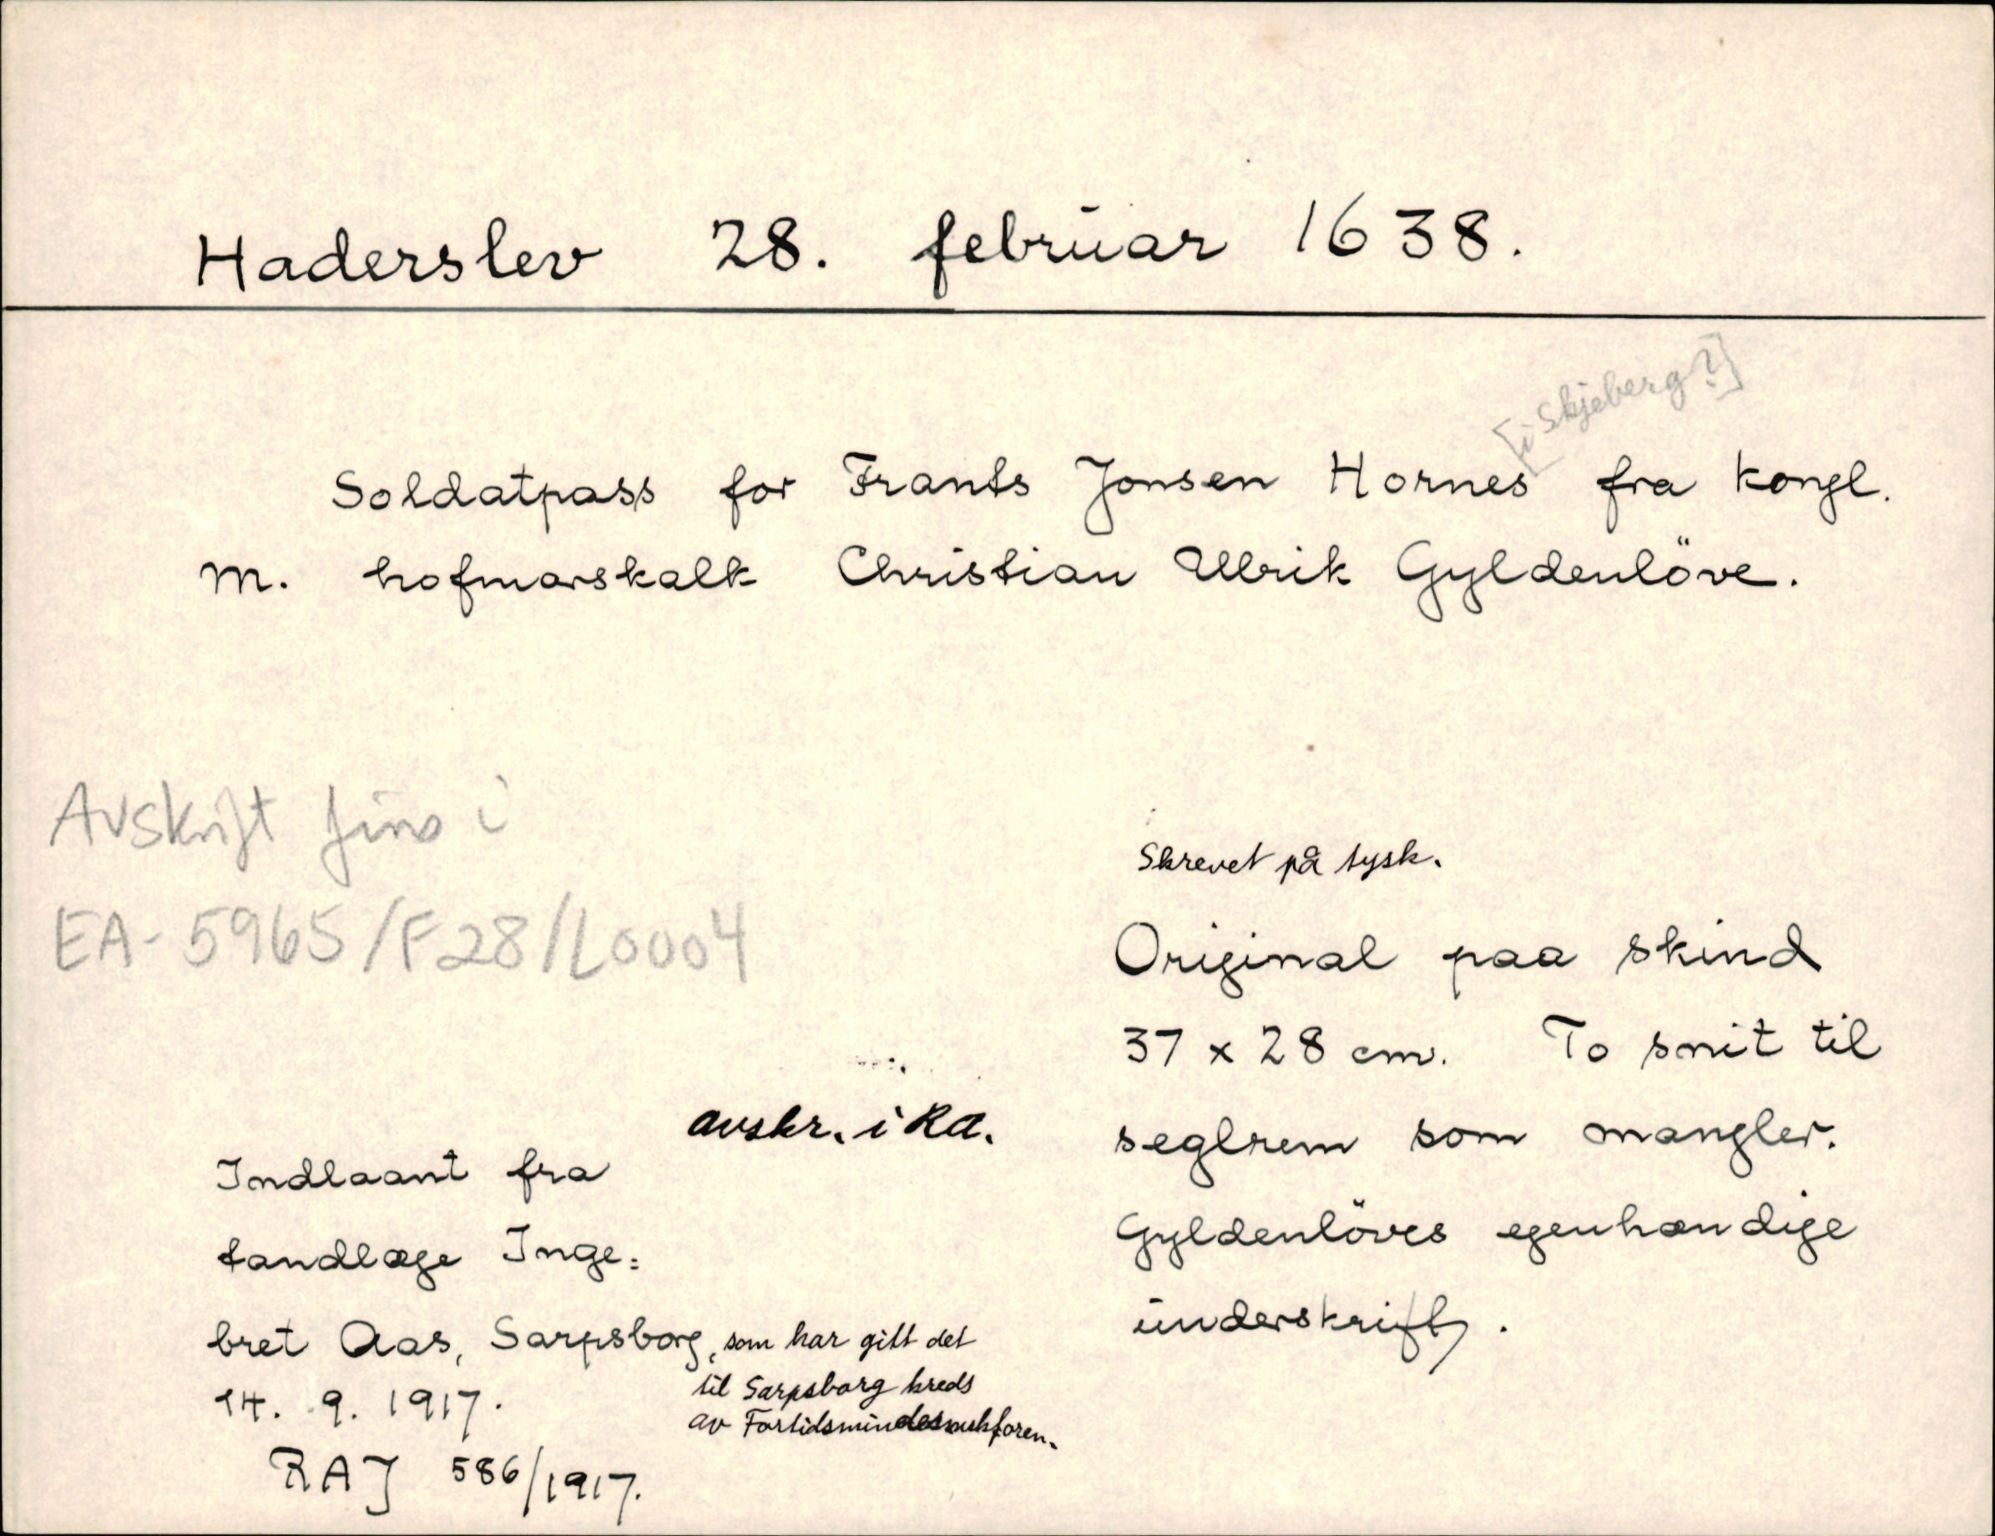 Haderslev 28. februar 1638.
[i Skjeberg?]
Soldatpass for Frants Jonsen Hornes fra kongl.
m. hofmarskalk Christian Ulrik Gyldenlöve.
Avskrift fins i
EA-5965/F28/L0004
Skrevet på tysk.
Original paa skind
37 x 28 cm. To snit til
seglrem som mangler.
Gyldenlöves egenhændige
underskrift.
avskr. i RA.
Indlaant fra
tandlæge Inge=
bret Aas, Sarpsborg, som har gitt det
til Sarpsborg kreds
av Fortidsmindesmkforen.
14. 9. 1917.
RAJ 586/1917.